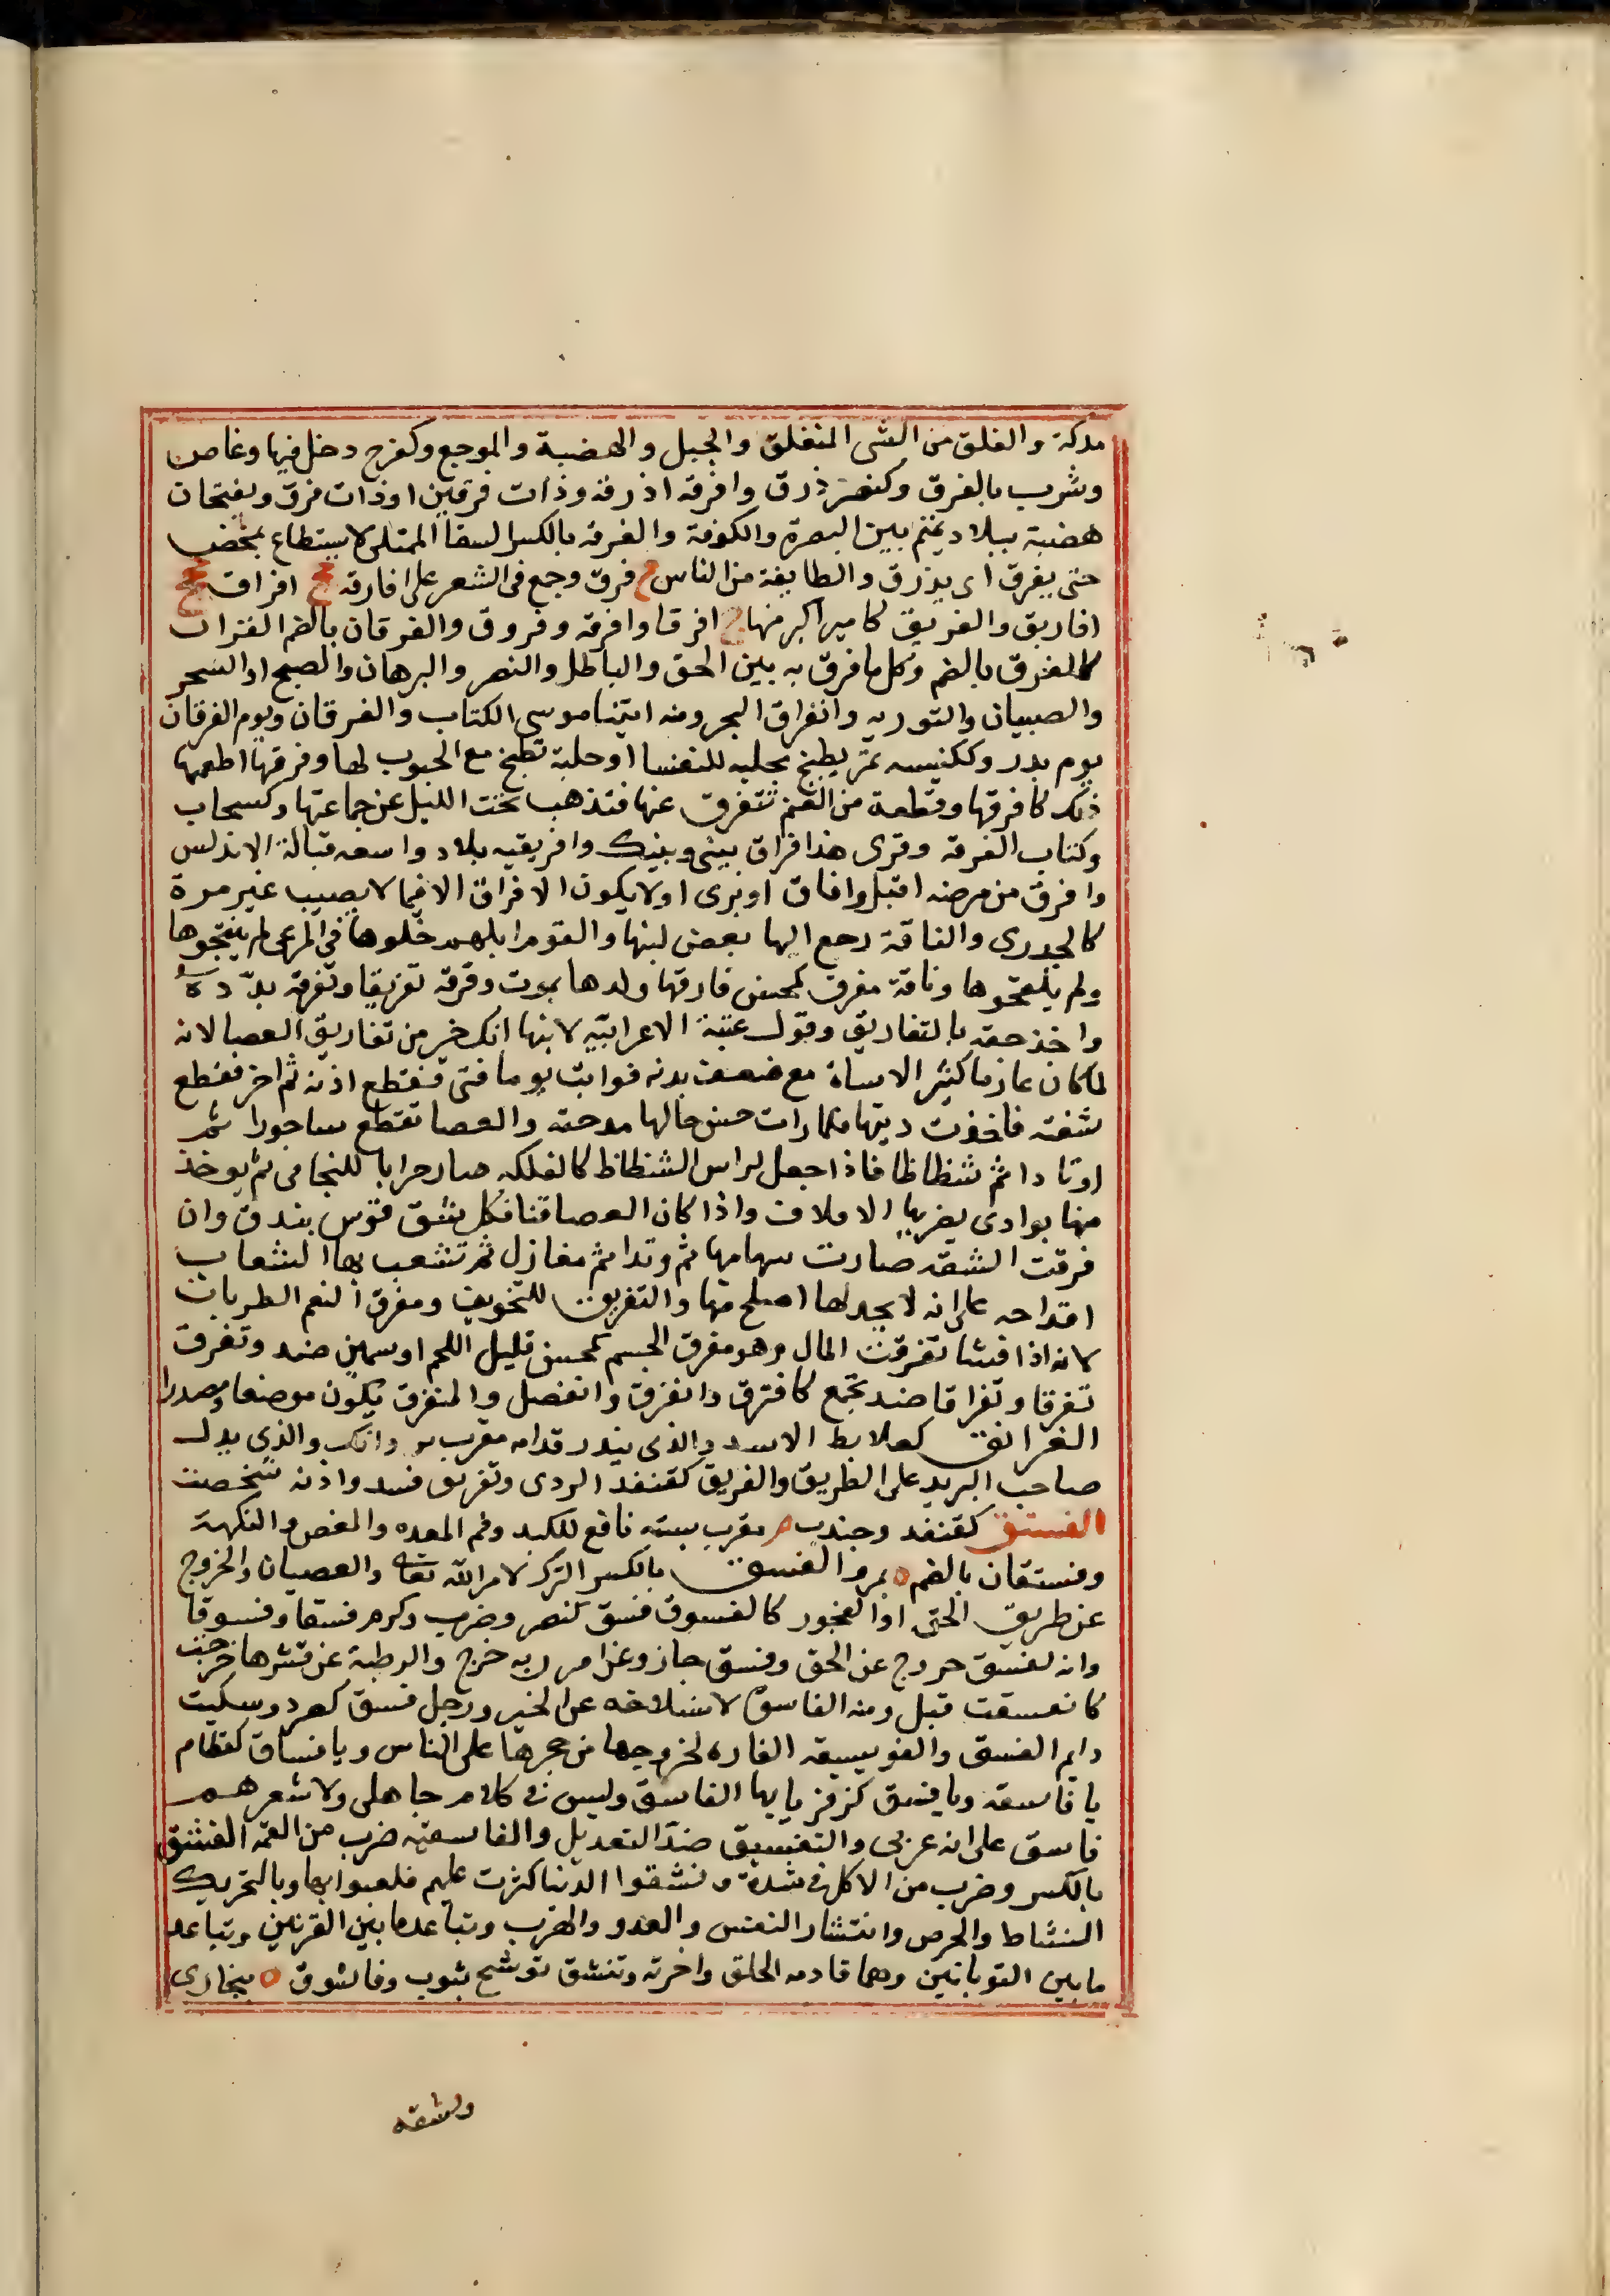 مدكة والفلق من الشى المنفلق والجبل والهضبة والموجع وكفرح دخل فيها وغاص
وشرب بالفرق وكنصر ذرق وافرقه اذرقه وذات فرقين اوذات فرق ويفتحان
هضبة ببلاد تميم بين البصرة والكوفة والفرقه بالكسر السقا الممتلى لا يستطاع يمخض
حتى يفرق اى يذرق والطايفة من الناس ج فرق وجمع فى الشعر على افارقه جج افراق ججج
افاريق والفريق كامير اكبر منها ج افرقا وافرقه وفروق والفرقان بالضم القران
كالفرق بالضم وكل ما فرق به بين الحق والباطل والنصر والبرهان والصبح او السحر
والصبيان والتوريه وانفراق البحر ومنه اتينا موسى الكتاب والفرقان ويوم الفرقان
يوم بدر وككنيسه تمر يطبخ بحلبه للنفسا او حلبة تطبخ مع الحبوب لها وفرقها اطعمها
ذلك كافرقها وقطعة من الغنم تتفرق عنها فتذهب تحت الليل عن جماعتها وكسحاب
وكتاب الفرقه وقرى هذا فراق بينى وبينك وافريقيه بلاد واسعه قبالة الاندلس
وافرق من مرضه اقبل وافاق او برى او لا يكون الافراق الا فيما لا يصيب غير مرة
كالجدرى والناقة رجع اليها بعض لبنها والقوم ابلهم خلوها فى المرعى لم ينتجوها
ولم يلقحوها وناقة مفرق كمحسن فارقها ولدها بموت وفرقه تفريقا وتفرقة بدّده
واخذ حقه بالتفاريق وقول غنية الاعرابيّه لابنها انك خير من تفاريق العصا لانه
لما كان عارما كثير الاساة مع ضعف بدنه فواثب يوما فتى فقطع اذنه ثم اخر فقطع
شفته فاخذت ديتها فلما رات حسن حالها مدحته والعصا تقطع ساجورا ثم
اوتادا ثم شظاظا فاذا جعل لراس الشظاظ كالفلكه صار حرابا للبخاتى ثم يوخذ
منها بوادى يضربها الاملاف واذا كان العصا قنا فكل شق قوس بندق وان
فرقت الشقه صارت سهامها ثم وتدا ثم مغازل ثم تشعب بها الشعاب
اقداحه على انه لا يجد لها اصلح منها والتفريق للتخويف ومفرق النعم الظربان
لانه اذا فشا تفرقت المال وهو مفرق الجسم كمحسن قليل اللحم او سمين ضد وتفرق
تفرقا وتفراقا ضد تجمع كافترق وانفرق وانفصل والمنفرق يكون موضعا ومصدرا
الفرانق كعلابط الاسد والذى ينذر قدامه معرب پروانك والذى يدل
صاحب البريد على الطريق والفريق كقنفد الردى وتفرنق فسد واذنه شخصت
الفستق كقنفد وجندب م معرب پسته نافع للكبد وفم المعده والمغص والنكهة
وفستقان بالضم ه بمرو الفسق بالكسر الترك لامر الله تعالى والعصيان والخروج
عن طريق الحق او الفجور كالفسوق فسق كنصر وضرب وكرم فسقا وفسوقا
وانه لفسق خروج عن الحق وفسق جاز وعن امر ربه خرج والرطبة عن قشرها خرجت
كانفسقت قبل ومنه الفاسق لانسلاخه عن الخير ورجل فسق كصرد وسكيت
دايم الفسق والفويسيقه الفاره لخروجها من جحرها على الناس ويا فساق كقطام
يا فاسقه ويا فسق كزفر يا يها الفاسق وليس فى كلام جاهلى ولا شعرهم
فاسق على انه عربى والتفسيق ضد التعديل والفاسقيّه ضرب من العمّه الفشق
بالكسر وضرب من الاكل فى شدة وفشقوا الدنيا كثرت عليهم فلعبوا بها وبالتحريك
النشاط والحرص وانتشار النفس والعدو والهرب وتباعد ما بين القرنين وتباعد
ما بين التوبانين وهما قادمه الخلق واخرته وتفشق توشح بثوب وفاشوق ه ببخارى
وفشقه